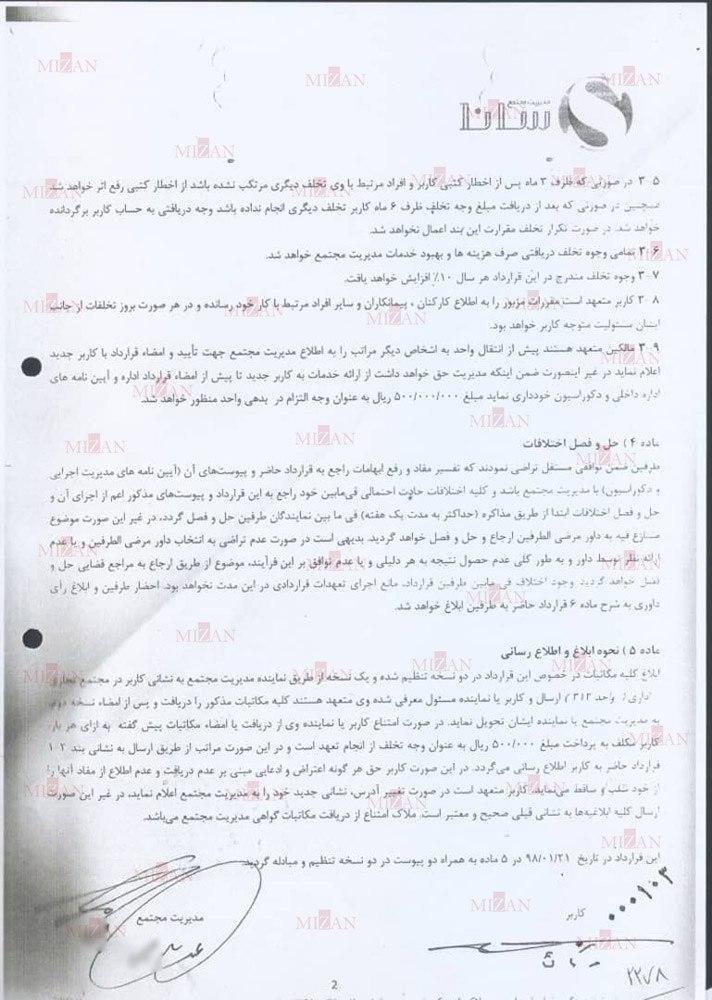 مدیریت مجتمع
سمانا
۳-۵ در صورتی که ظرف ۳ ماه پس از اخطار کتبی کاربر و افراد مرتبط با وی تخلف دیگری مرتکب نشده باشد از اخطار کتبی رفع اثر خواهد شد.
همچنین در صورتی که بعد از دریافت مبلغ وجه تخلف ظرف ۶ ماه کاربر تخلف دیگری انجام نداده باشد وجه دریافتی به حساب کاربر برگردانده
خواهد شد. در صورت تکرار تخلف مقرارت این بند اعمال نخواهد شد.
۳-۶ تمامی وجوه تخلف دریافتی صرف هزینه ها و بهبود خدمات مدیریت مجتمع خواهد شد.
۳-۷ وجوه تخلف مندرج در این قرارداد هر سال ۱۰٪ افزایش خواهد یافت.
۳-۸ کاربر متعهد است مقررات مزبور را به اطلاع کارکنان ، پیمانکاران و سایر افراد مرتبط با کار خود رسانده و در هر صورت بروز تخلفات از جانب
ایشان مسئولیت متوجه کاربر خواهد بود.
۳-۹ مالکین متعهد هستند پیش از انتقال واحد به اشخاص دیگر مراتب را به اطلاع مدیریت مجتمع جهت تأیید و امضاء قرارداد با کاربر جدید
اعلام نماید در غیر اینصورت ضمن اینکه مدیریت حق خواهد داشت از ارائه خدمات به کاربر جدید تا پیش از امضاء قرارداد اداره و آیین نامه های
اداره داخلی و دکوراسیون خودداری نماید مبلغ ۵۰۰/۰۰۰/۰۰۰ ریال به عنوان وجه التزام در بدهی واحد منظور خواهد شد.
ماده ۴ ) حل و فصل اختلافات
طرفین ضمن توافقی مستقل تراضی نمودند که تفسیر مفاد و رفع ابهامات راجع به قرارداد حاضر و پیوست‌های آن (آیین نامه های مدیریت اجرایی
و دکوراسیون) با مدیریت مجتمع باشد و کلیه اختلافات حادث احتمالی فی‌مابین خود راجع به این قرارداد و پیوست‌های مذکور اعم از اجرای آن و
حل و فصل اختلافات ابتدا از طریق مذاکره (حداکثر به مدت یک هفته) فی ما بین نمایندگان طرفین حل و فصل گردد، در غیر این صورت موضوع
متنازع فیه به داور مرضی الطرفین ارجاع و حل و فصل خواهد گردید. بدیهی است در صورت عدم تراضی به انتخاب داور مرضی الطرفین و یا عدم
ارائه نظر توسط داور و به طور کلی عدم حصول نتیجه به هر دلیلی و یا عدم توافق بر این فرآیند، موضوع از طریق ارجاع به مراجع قضایی حل و
فصل خواهد گردید. وجود اختلاف فی مابین طرفین قرارداد، مانع اجرای تعهدات قراردادی در این مدت نخواهد بود. احضار طرفین و ابلاغ رأی
داوری به شرح ماده ۶ قرارداد حاضر به طرفین ابلاغ خواهد شد.
ماده ۵ ) نحوه ابلاغ و اطلاع رسانی
ابلاغ کلیه مکاتبات در خصوص این قرارداد در دو نسخه تنظیم شده و یک نسخه از طریق نماینده مدیریت مجتمع به نشانی کاربر در مجتمع تجاری
اداری ( واحد ۳۱۲ ) ارسال و کاربر یا نماینده مسئول معرفی شده وی متعهد هستند کلیه مکاتبات مذکور را دریافت و پس از امضاء نسخه دوم
به مدیریت مجتمع یا نماینده ایشان تحویل نماید. در صورت امتناع کاربر یا نماینده وی از دریافت یا امضاء مکاتبات پیش گفته به ازای هر بار
کاربر مکلف به پرداخت مبلغ ۵۰۰/۰۰۰ ریال به عنوان وجه تخلف از انجام تعهد است و در این صورت مراتب از طریق ارسال به نشانی بند ۲-۱
قرارداد حاضر به کاربر اطلاع رسانی می‌گردد. در این صورت کاربر حق هر گونه اعتراض و ادعایی مبنی بر عدم دریافت و عدم اطلاع از مفاد آنها را
از خود سلب و ساقط می‌نماید. کاربر متعهد است در صورت تغییر آدرس، نشانی جدید خود را به مدیریت مجتمع اعلام نماید، در غیر این صورت
ارسال کلیه ابلاغیه‌ها به نشانی قبلی صحیح و معتبر است. ملاک امتناع از دریافت مکاتبات گواهی مدیریت مجتمع می‌باشد.
این قرارداد در تاریخ ۹۸/۰۱/۲۱ در ۵ ماده به همراه دو پیوست در دو نسخه تنظیم و مبادله گردید.
کاربر
مدیریت مجتمع
۰۰۰۱۰۳
۲۲۷۸
2
MIZAN